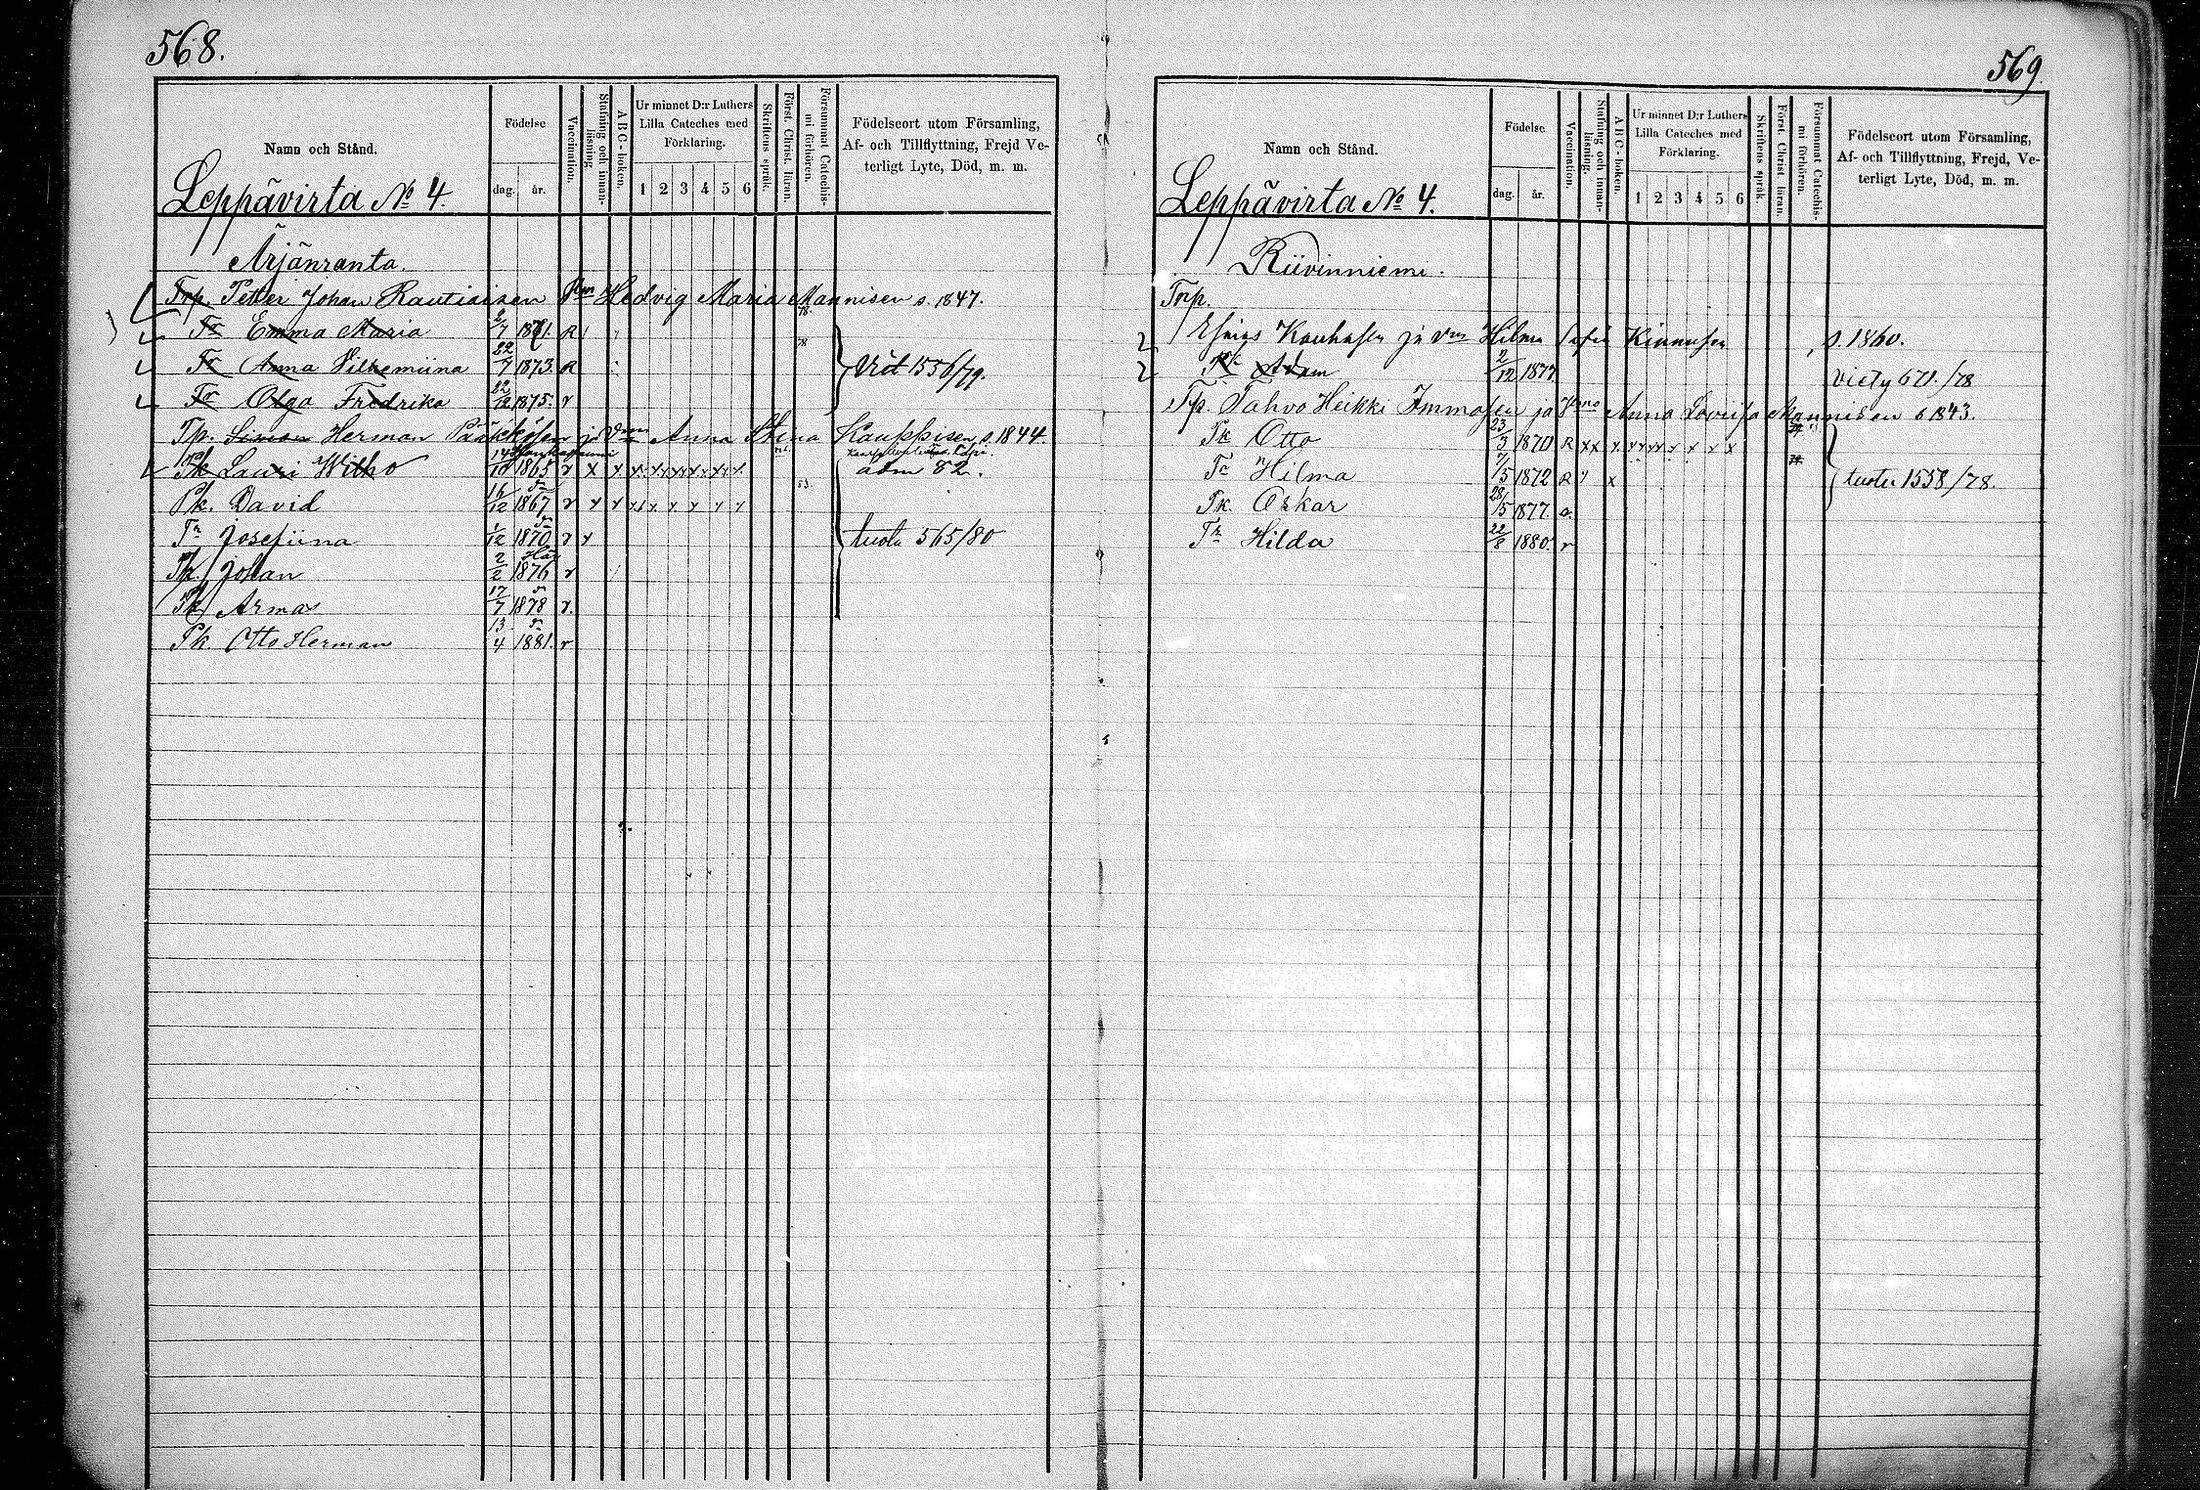 568.
Namn och Stånd.
Födelse
dag.
år.
Vaccination.
Stafning och innan-läsning
A B C - boken.
Ur minnet D:r Luthers
Lilla Cateches med
Förklaring.
1 2 3 4 5 6
Skriftens språk.
Först. Christ. läran.
Försummat Catechis-mi förhören.
Födelseort utom Församling,
Af- och Tillflyttning, Frejd Ve-
terligt Lyte, Död, m. m.
Leppävirta No 4.
Ärjänranta.
Trp. Petter Johan Rautiaisen Hedvig Maria Mannisen s. 1847.
Tr Emma Maria 2/7 1871. R
Tr Anna Vilhemiina 22/7 1873. R
Tr Olga Fredrika 22/12 1875. r
Tp. Simon Herman Pääkkösen ja Vmo Anna Stina Kauppisen s. 1844.
Pk Lauri Wilho 14/10 1865 r x
David 16/12 1867 r
Tr Josefiina 1/12 1870 r
tuotu 565/80
Pk. Johan 2/2 1876 r
Pk Armas 17/7 1878 r.
Pk. Otto Herman 13/4 1881. r
569.
Namn och Stånd.
Födelse
dag.
år.
Vaccination.
Stafning och innan-läsning.
A B C - boken.
Ur minnet D:r Luthers
Lilla Cateches med
Förklaring.
1 2 3 4 5 6
Skriftens språk.
Först. Christ läran.
Försummat Catechis-mi förhören.
Födelseort utom Församling,
Af- och Tillflyttning, Frejd, Ve-
terligt Lyte, Död, m. m.
Leppävirta No 4.
Riivinniemi.
Trp.
Kauhasen ja Vmo Hilma Sofia Kinnusen s. 1860.
Adam 2/12 1877
viety 671./78
Tp. Tahvo Heikki Immosen ja Anna Loviisa Mannisen s 1843.
Pk Otto 23/3 1870 R x x
Tr Hilma 7/5 1872 R
tuotu 1558/78.
Pk. Oskar 28/5 1877.
Tr Hilda 22/8 1880. r